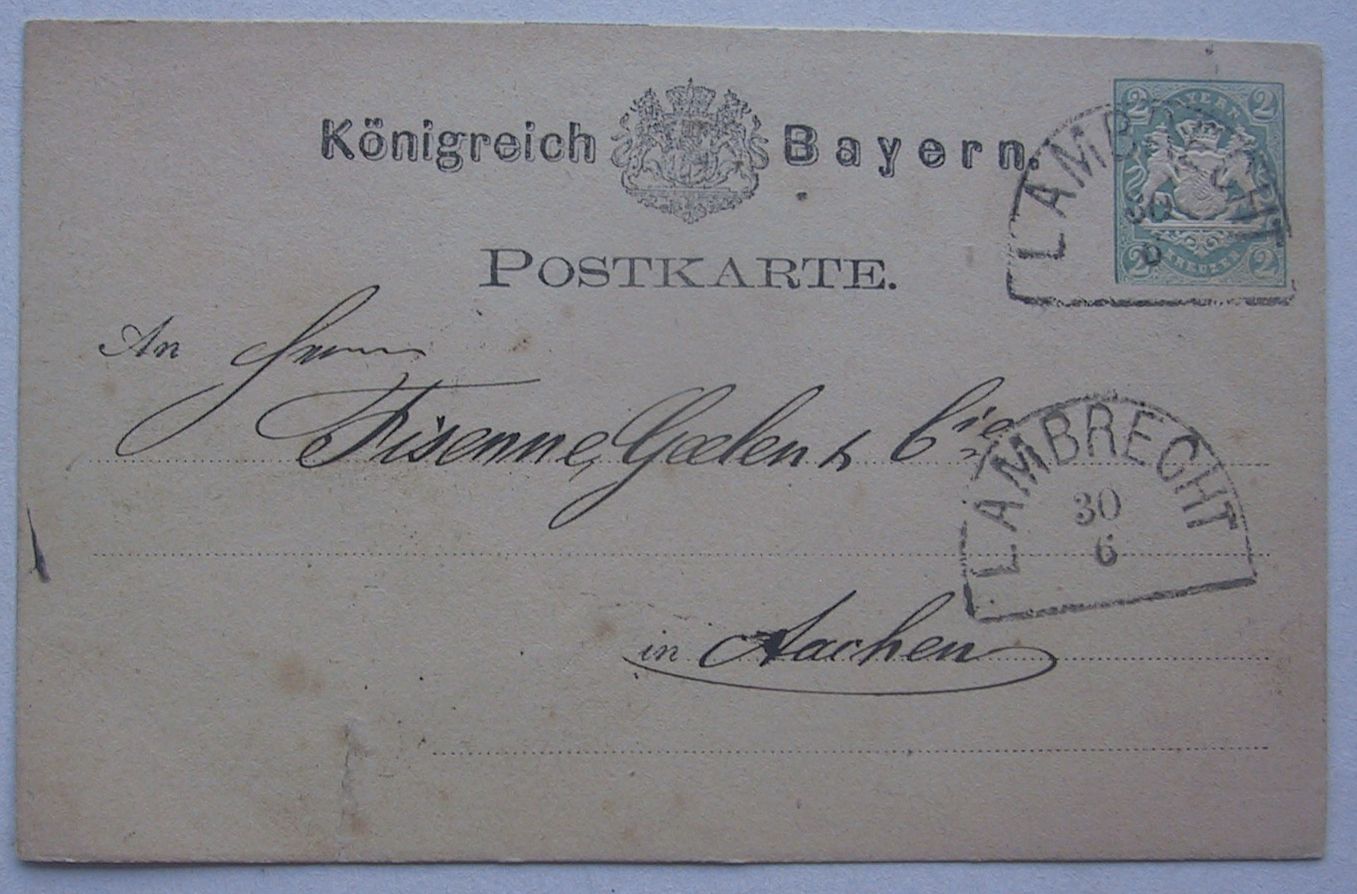 Königreich Bayern.
2 BAYERN 2
2 KREUZER 2
LAMBRECHT
30
6
POSTKARTE.
An Herrn
Fisenne, Gælen & Cie
LAMBRECHT
30
6
in Aachen